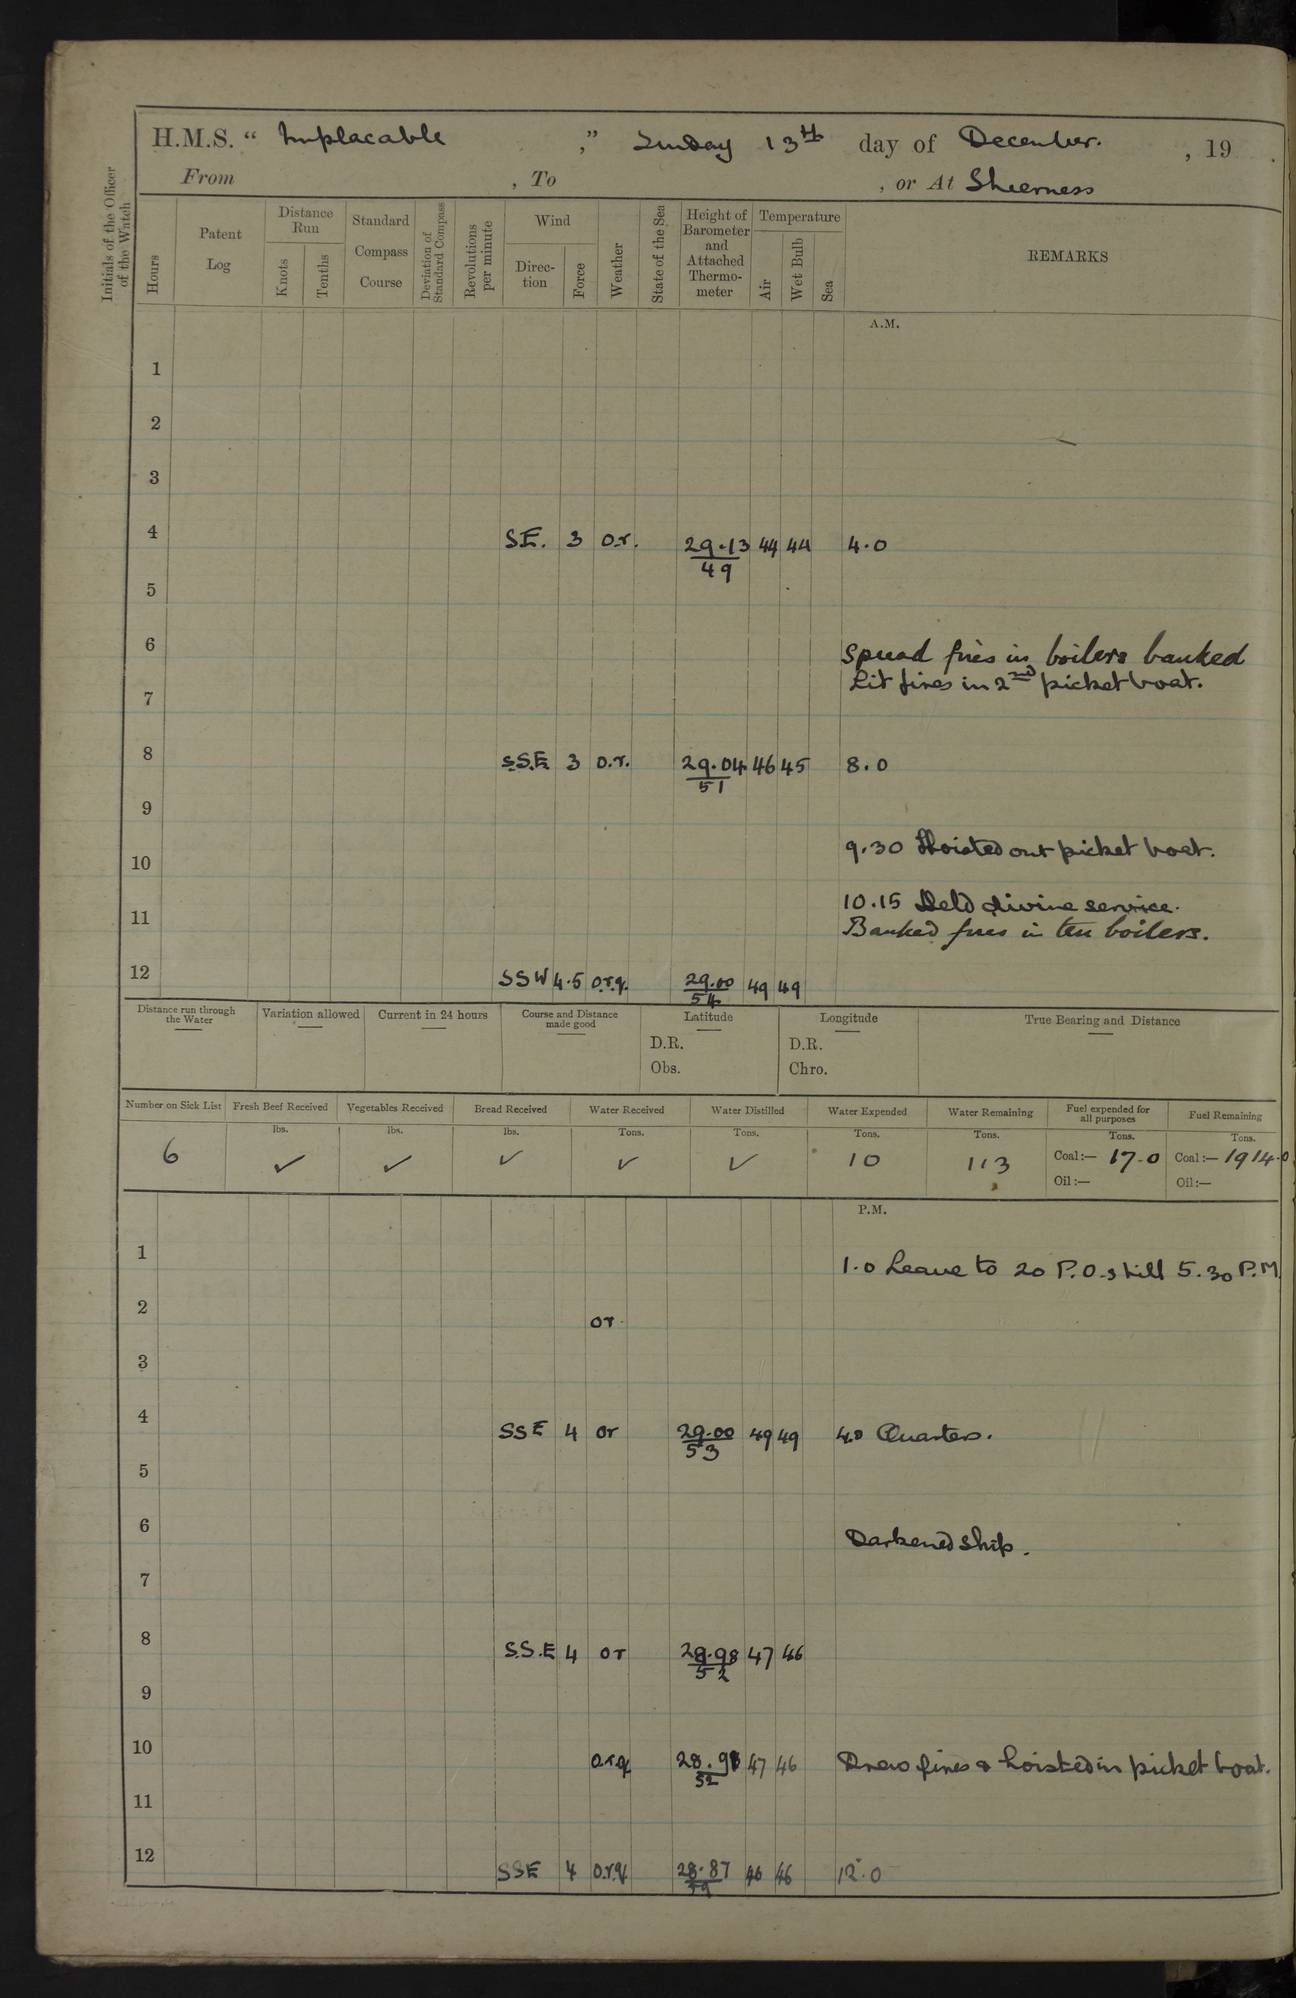 H.M.S. “ Implacable ,” Sunday 13th day of December. , 19 .
From , To , or At Sheerness
Initials of the Officer of the Watch
Hours
Patent Log
Distance Run
Knots
Tenths
Standard Compass Course
Deviation of Standard Compass
Revolutions per minute
Wind
Direc-tion
Force
Weather
State of the Sea
Height of Barometer and Attached Thermo-meter
Temperature
Air
Wet Bulb
Sea
REMARKS
A.M.
1
2
3
4 SE. 3 o.r. 29.13 44 44 4.0
49
5
6
Spread fires in boilers banked
Lit fires in 2nd picket boat.
7
8 S.S.E 3 o.r. 29.04 46 45 8.0
51
9
9.30 Hoisted out picket boat.
10
10.15 Held divine service.
11
Banked fires in ten boilers.
12 SSW 4.5 o.r.q. 29.00 49 49
54
Distance run through the Water
Variation allowed
Current in 24 hours
Course and Distance made good
Latitude
D.R.
Obs.
Longitude
D.R.
Chro.
True Bearing and Distance
Number on Sick List Fresh Beef Received Vegetables Received Bread Received Water Received Water Distilled Water Expended Water Remaining Fuel expended for all purposes Fuel Remaining
lbs. lbs. lbs. Tons. Tons. Tons. Tons. Tons. Tons.
6 ✓ ✓ ✓ ✓ ✓ 10 113 Coal:— 17.0 Coal:— 1914.0
Oil:— Oil:—
P.M.
1 1.0 Leave to 20 P.O.s till 5.30 P.M.
2 or
3
4 SSE 4 or 29.00 49 49 4.0 Quarters.
53
5
6 Darkened ship.
7
8 S.S.E 4 or 28.98 47 46
52
9
10 o.r.q 28.98 47 46 Drew fires & hoisted in picket boat.
52
11
12 SSE 4 o.r.q. 28.87 46 46 12.0